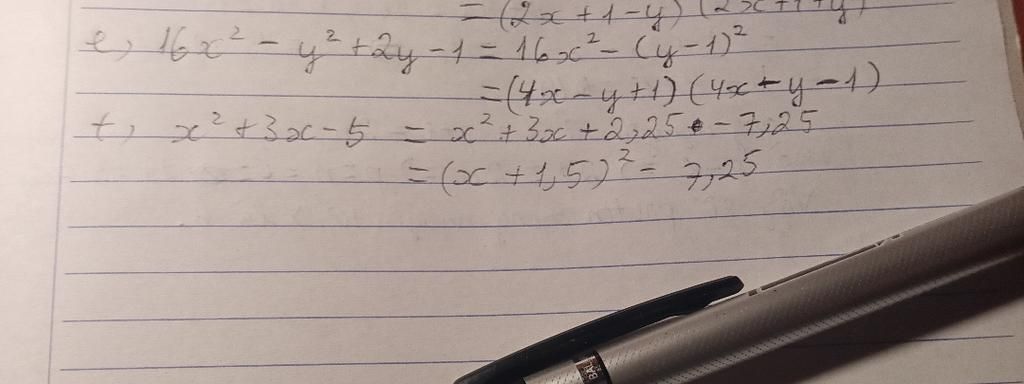 = (2x + 1 - y) (2x + 1 + y)
e, 16x² - y² + 2y - 1 = 16x² - (y - 1)²
= (4x - y + 1) (4x + y - 1)
f, x² + 3x - 5 = x² + 3x + 2,25 - 7,25
= (x + 1,5)² - 7,25